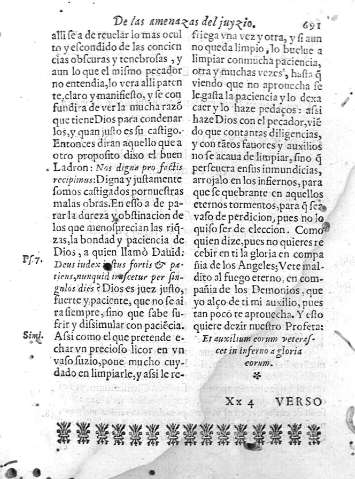 De las amenazas del juyzio.
691
alli se a de reuelar lo mas ocul
to y escondido de las concien
cias obscuras y tenebrosas, y
aun lo que el mismo pecador
no entendia, lo vera alli paten
te, claro y manifiesto, y se con
fundira de ver la mucha razõ
que tiene Dios para condenar
los, y quan justo es su castigo.
Entonces diran aquello que a
otro proposito dixo el buen
Ladron: Nos digna pro factis
recipimus: Digna y justamente
somos castigados por nuestras
malas obras. En esso a de pa-
rar la dureza y obstinacion de
los que menosprecian las riq̃
zas, la bondad y paciencia de
Dios, a quien llamò Dauid:
Psf. 7.
Deus iudex iustus fortis & pa-
tiens, nunquid irascetur per sin-
gulos dies? Dios es juez justo,
fuerte y paciente, que no se ai
ra siempre, sino que sabe suf-
frir y dissimular con paciẽcia.
Simi.
Assi como el que pretende e-
char vn precioso licor en vn
vaso suzio, pone mucho cuy-
dado en limpiarle, y assi le re-
friega vna vez y otra, y si aun
no queda limpio, lo buelue a
limpiar con mucha paciencia,
otra y muchas vezes, hasta q̃
viendo que no aprouecha se
le gasta la paciencia y lo dexa
caer y lo haze pedaços: assi
haze Dios con el pecador, viẽ
do que con tantas diligencias,
y con tãtos fauores y auxilios
no se acaua de limpiar, sino q̃
perseuera en sus inmundicias,
arrojalo en los infiernos, para
que se quebrante en aquellos
eternos tormentos, para q̃ sea
vaso de perdicion, pues no lo
quiso ser de eleccion. Como
quien dize, pues no quieres re
cebir en ti la gloria en compa
ñia de los Angeles; Vete mal-
dito al fuego eterno, en com-
pañia de los Demonios, que
yo alço de ti mi auxilio, pues
tan poco te aprouecha. Y esto
quiere dezir nuestro Profeta:
Et auxilium eorum veteras-
cet in inferno a gloria
eorum.
Xx 4 VERSO